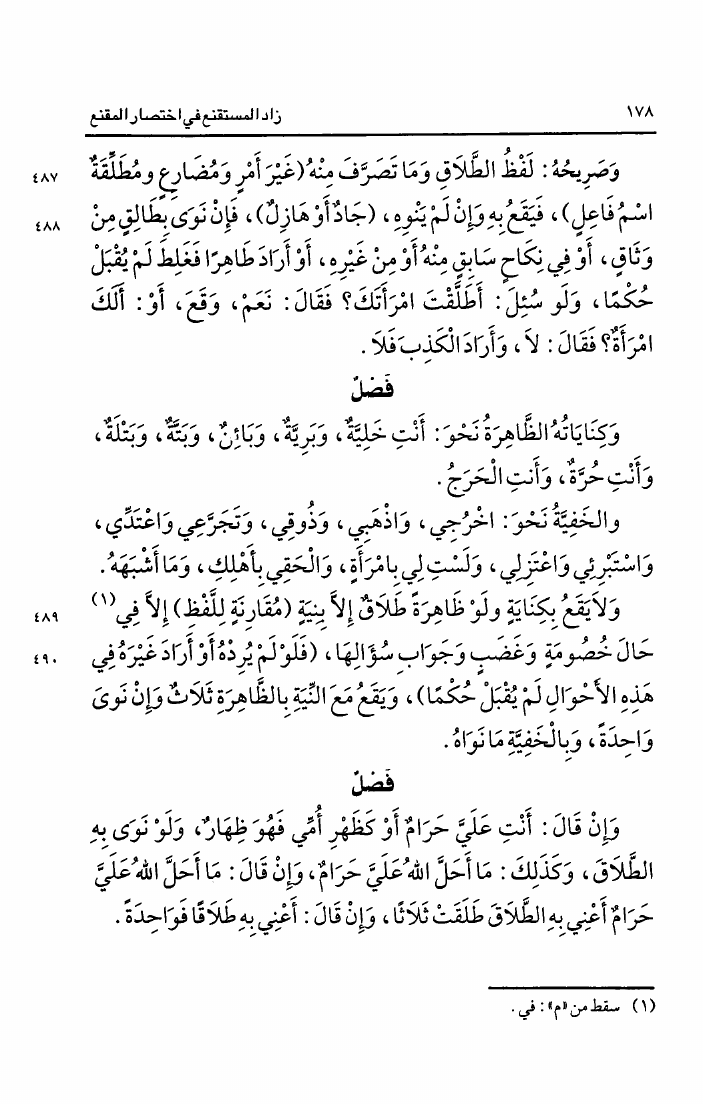 ١٧٨ زاد المستقنع في اختصار المقنع
وَصَرِيحُهُ: لَفْظُ الطَّلَاقِ وَمَا تَصَرَّفَ مِنْهُ (غَيْرَ أَمْرٍ وَمُضَارِعٍ ومُطَلِّقَةٌ ٤٨٧
اسْمُ فَاعِلٍ)، فَيَقَعُ بِهِ وَإِنْ لَمْ يَنْوِهِ، (جَادٌّ أَوْ هَازِلٌ)، فَإِنْ نَوَى بِطَالِقٍ مِنْ ٤٨٨
وَثَاقٍ، أَوْ فِي نِكَاحٍ سَابِقٍ مِنْهُ أَوْ مِنْ غَيْرِهِ، أَوْ أَرَادَ طَاهِرًا فَغَلِطَ لَمْ يُقْبَلْ
حُكْمًا، وَلَو سُئِلَ: أَطَلَّقْتَ امْرَأَتَكَ؟ فَقَالَ: نَعَمْ، وَقَعَ، أَوْ: أَلَكَ
امْرَأَةٌ؟ فَقَالَ: لاَ، وَأَرَادَ الْكَذِبَ فَلاَ.
فَصْلٌ
وَكِنَايَاتُهُ الظَّاهِرَةُ نَحْوَ: أَنْتِ خَلِيَّةٌ، وَبَرِيَّةٌ، وَبَائِنٌ، وَبَتَّةٌ، وَبَتْلَةٌ،
وَأَنْتِ حُرَّةٌ، وَأَنتِ الْحَرَجُ.
والخَفِيَّةُ نَحْوَ: اخْرُجِي، وَاذْهَبِي، وَذُوقِي، وَتَجَرَّعِي وَاعْتَدِّي،
وَاسْتَبْرِئِي وَاعْتَزِلِي، وَلَسْتِ لِي بِامْرَأَةٍ، وَالْحَقِي بِأَهْلِكِ، وَمَا أَشْبَهَهُ.
وَلاَ يَقَعُ بِكِنَايَةٍ ولَوْ ظَاهِرَةً طَلَاقٌ إِلاَّ بِنِيَةٍ (مُقَارِنَةٍ لِلَّفْظِ) إِلاَّ فِي(١) ٤٨٩
حَالَ خُصُومَةٍ وَغَضَبٍ وَجَوَابِ سُؤَالِهَا، (فَلَوْ لَمْ يُرِدْهُ أَوْ أَرَادَ غَيْرَهُ فِي ٤٩٠
هَذِهِ الأَحْوَالِ لَمْ يُقْبَلْ حُكْمًا)، وَيَقَعُ مَعَ النِّيَةِ بِالظَّاهِرَةِ ثَلَاثٌ وَإِنْ نَوَىَ
وَاحِدَةً، وَبِالْخَفِيَّةِ مَا نَوَاهُ.
فَصْلٌ
وَإِنْ قَالَ: أَنْتِ عَلَيَّ حَرَامٌ أَوْ كَظَهْرِ أُمِّي فَهُوَ ظِهَارٌ، وَلَوْ نَوَى بِهِ
الطَّلَاقَ، وَكَذَلِكَ: مَا أَحَلَّ اللهُ عَلَيَّ حَرَامٌ، وَإِنْ قَالَ: مَا أَحَلَّ اللهُ عَلَيَّ
حَرَامٌ أَعْنِي بِهِ الطَّلَاقَ طَلَقَتْ ثَلَاثًا، وَإِنْ قَالَ: أَعْنِي بِهِ طَلَاقًا فَوَاحِدَةً.
(١) سقط من «م»: في.